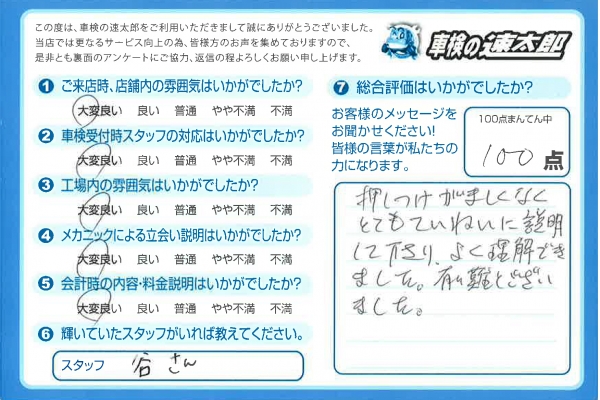 この度は、車検の速太郎をご利用いただきまして誠にありがとうございました。
当店では更なるサービス向上の為、皆様方のお声を集めておりますので、
是非とも裏面のアンケートにご協力、返信の程よろしくお願い申し上げます。
車検の速太郎
❶ ご来店時、店舗内の雰囲気はいかがでしたか?
大変良い 良い 普通 やや不満 不満
❷ 車検受付時スタッフの対応はいかがでしたか?
大変良い 良い 普通 やや不満 不満
❸ 工場内の雰囲気はいかがでしたか?
大変良い 良い 普通 やや不満 不満
❹ メカニックによる立会い説明はいかがでしたか?
大変良い 良い 普通 やや不満 不満
❺ 会計時の内容・料金説明はいかがでしたか?
大変良い 良い 普通 やや不満 不満
❻ 輝いていたスタッフがいれば教えてください。
スタッフ 谷さん
❼ 総合評価はいかがでしたか?
お客様のメッセージを
お聞かせください!
皆様の言葉が私たちの
力になります。
100点まんてん中
100 点
押しつけがましくなく
とてもていねいに説明
して下さり、よく理解でき
ました。有難とござい
ました。